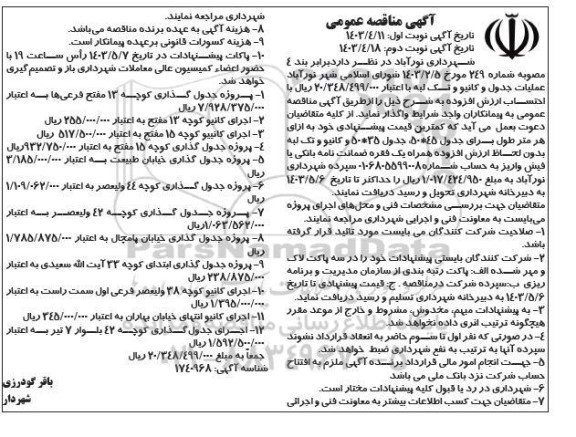 آگهی مناقصه عمومی
تاریخ آگهی نوبت اول: ۱۴۰۳/۴/۱۱
تاریخ آگهی نوبت دوم: ۱۴۰۳/۴/۱۸
شهرداری نورآباد در نظر دارد برابر بند ۴
مصوبه شماره ۲۴۹ مورخ ۱۴۰۳/۲/۵ شورای اسلامی شهر نورآباد
عملیات جدول و کانیو و تک لبه با اعتبار ۲۰/۳۴۸/۴۹۹/۰۰۰ ریال با
احتساب ارزش افزوده به شرح ذیل را از طریق آگهی مناقصه
عمومی به پیمانکاران واجد شرایط واگذار نماید. از کلیه متقاضیان
دعوت بعمل می آید که کمترین قیمت پیشنهادی خود به ازای
هر متر طول برای جدول ۴۵*۵۰ جدول ۳۵*۵۰ و کانیو و تک لبه
بدون لحاظ ارزش افزوده همراه یک فقره ضمانت نامه بانکی یا
فیش واریز به حساب شماره ۰۱۰۶۸۰۵۵۹۹۰۰۸ سپرده شهرداری
نورآباد به مبلغ ۱/۰۱۷/۴۲۴/۹۵۰ ریال را حداکثر تا تاریخ ۱۴۰۳/۵/۶
به دبیرخانه شهرداری تحویل و رسید دریافت نمایند.
متقاضیان جهت بررسی مشخصات فنی و محل‌های اجرای پروژه
می‌بایست به معاونت فنی و اجرایی شهرداری مراجعه نمایند.
۱- صلاحیت شرکت کنندگان می بایست مورد تائید قرار گرفته
باشد.
۲- شرکت کنندگان بایستی پیشنهادات خود را در سه پاکت لاک
و مهر شده الف: پاکت رتبه بندی از سازمان مدیریت و برنامه
ریزی ب:سپرده شرکت در مناقصه . ج. قیمت پیشنهادی تا تاریخ
۱۴۰۳/۵/۶ به دبیرخانه شهرداری تسلیم و رسید دریافت نماید.
۳- به پیشنهادات مبهم، مخدوش، مشروط و خارج از موعد مقرر
هیچگونه ترتیب اثری داده نخواهد شد.
۴- در صورتی که نفر اول تا سوم حاضر به انعقاد قرارداد نشوند
سپرده آنها به ترتیب به نفع شهرداری ضبط خواهد شد.
۵- جهت انجام امور مالی قرارداد برنده آگهی ملزم به افتتاح
حساب شرکت نزد بانک ملی می باشد.
۶- شهرداری در رد یا قبول کلیه پیشنهادات مختار است.
۷- متقاضیان جهت کسب اطلاعات بیشتر به معاونت فنی و اجرائی
شهرداری مراجعه نمایند.
۸- هزینه آگهی به عهده برنده مناقصه می‌باشد.
۹- هزینه کسورات قانونی برعهده پیمانکار است.
۱۰- پاکات پیشنهادات در تاریخ ۱۴۰۳/۵/۷ رأس ساعت ۱۹ با
حضور اعضاء کمیسیون عالی معاملات شهرداری باز و تصمیم گیری
خواهد شد.
۱- پروژه جدول گذاری کوچه ۱۳ مفتح فرعی‌ها به اعتبار
۷/۹۲۸/۳۷۵/۰۰۰ ریال
۲- اجرای کانیو کوچه ۱۳ مفتح به اعتبار ۲۵۵/۰۰۰/۰۰۰ ریال
۳- اجرای کانیو کوچه ۱۵ مفتح به اعتبار ۵۱۷/۵۰۰/۰۰۰ ریال
۴- پروژه جدول گذاری کوچه ۱۵ مفتح به اعتبار ۹۳۲/۷۵۰/۰۰۰ریال
۵- پروژه جدول گذاری خیابان طبیعت به اعتبار ۳/۱۸۵/۰۰۰/۰۰۰
ریال
۶- پروژه جدول گذاری کوچه ۴۴ ولیعصر به اعتبار ۱/۱۰۹/۰۶۲/۰۰۰
ریال
۷- پروژه جدول گذاری کوچه ۴۲ ولیعصر به اعتبار
۱/۰۶۳/۵۶۲/۰۰۰ریال
۸- پروژه جدول گذاری خیابان پامچال به اعتبار ۱/۷۸۵/۸۷۵/۰۰۰
ریال
۹- پروژه جدول گذاری ابتدای کوچه ۳۳ آیت الله سعیدی به اعتبار
۲۳۸/۸۷۵/۰۰۰ ریال
۱۰- اجرای کانیو کوچه ۳۸ ولیعصر فرعی اول سمت راست به اعتبار
۱/۳۹۵/۰۰۰/۰۰۰ ریال
۱۱- اجرای کانیو انتهای خیابان بهاران به اعتبار ۳۴۵/۰۰۰/۰۰۰ ریال
۱۲- اجرای جدول گذاری کوچه ۴۲ بلسوار ۷ تیر به اعتبار
۱/۵۹۲/۵۰۰/۰۰۰ ریال
جمعاً به مبلغ ۲۰/۳۴۸/۴۹۹/۰۰۰ ریال
شناسه آگهی: ۱۷۴۰۹۶۸
باقر گودرزی
شهردار
ParsNamadData